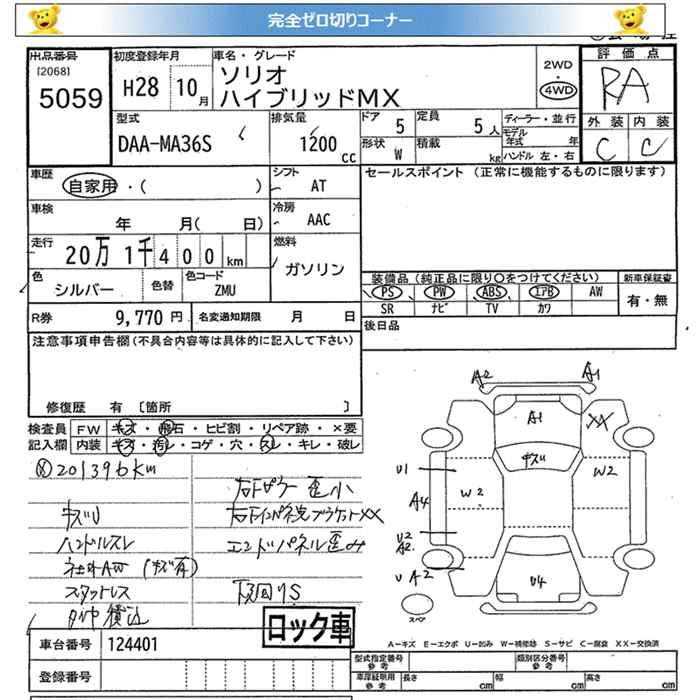 完全ゼロ切りコーナー
出品番号
[2068]
5059
初度登録年月
H28 10月
車名・グレード
ソリオ
ハイブリッドMX
2WD
4WD
評価点
RA
外装 内装
C C
型式
DAA-MA36S
排気量
1200
cc
ドア 5
定員 5人
形状 W
積載 kg
ディーラー・並行
モデル年式 年
ハンドル 左・右
車歴
自家用・( )
シフト
AT
セールスポイント (正常に機能するものに限ります)
車検
年 月( 日)
冷房
AAC
走行
20万 1千400km
燃料
ガソリン
色
シルバー
色替
色コード
ZMU
装備品 (純正品に限り○をつけてください)
新車保証書
PS PW ABS エアB AW
有・無
SR ナビ TV カワ
R券 9,770円
名変通知期限 月 日
後日品
注意事項申告欄 (不具合内容等は具体的に記入して下さい)
修復歴 有 〔箇所 〕
検査員 FW キズ・飛石・ヒビ割・リペア跡・×要
記入欄 内装 キズ・汚レ・コゲ・穴・スレ・キレ・破レ
201396km
キズU
ハンドルスレ
社外AW (キズ有)
スタットレス
タイヤ積込
右Fピラー歪小
エンドパネル歪み
下回りS
A2
A1
A1
XX
キズU
U1
A4
W2
W2
U2
A2
U A2
U4
スペア
車台番号 124401
ロック車
登録番号
A－キズ E－エクボ U－凹み W－補修跡 S－サビ C－腐食 XX－交換済
型式指定番号
参考
類別区分番号
参考
車庫証明用
参考
長さ cm
幅 cm
高さ cm